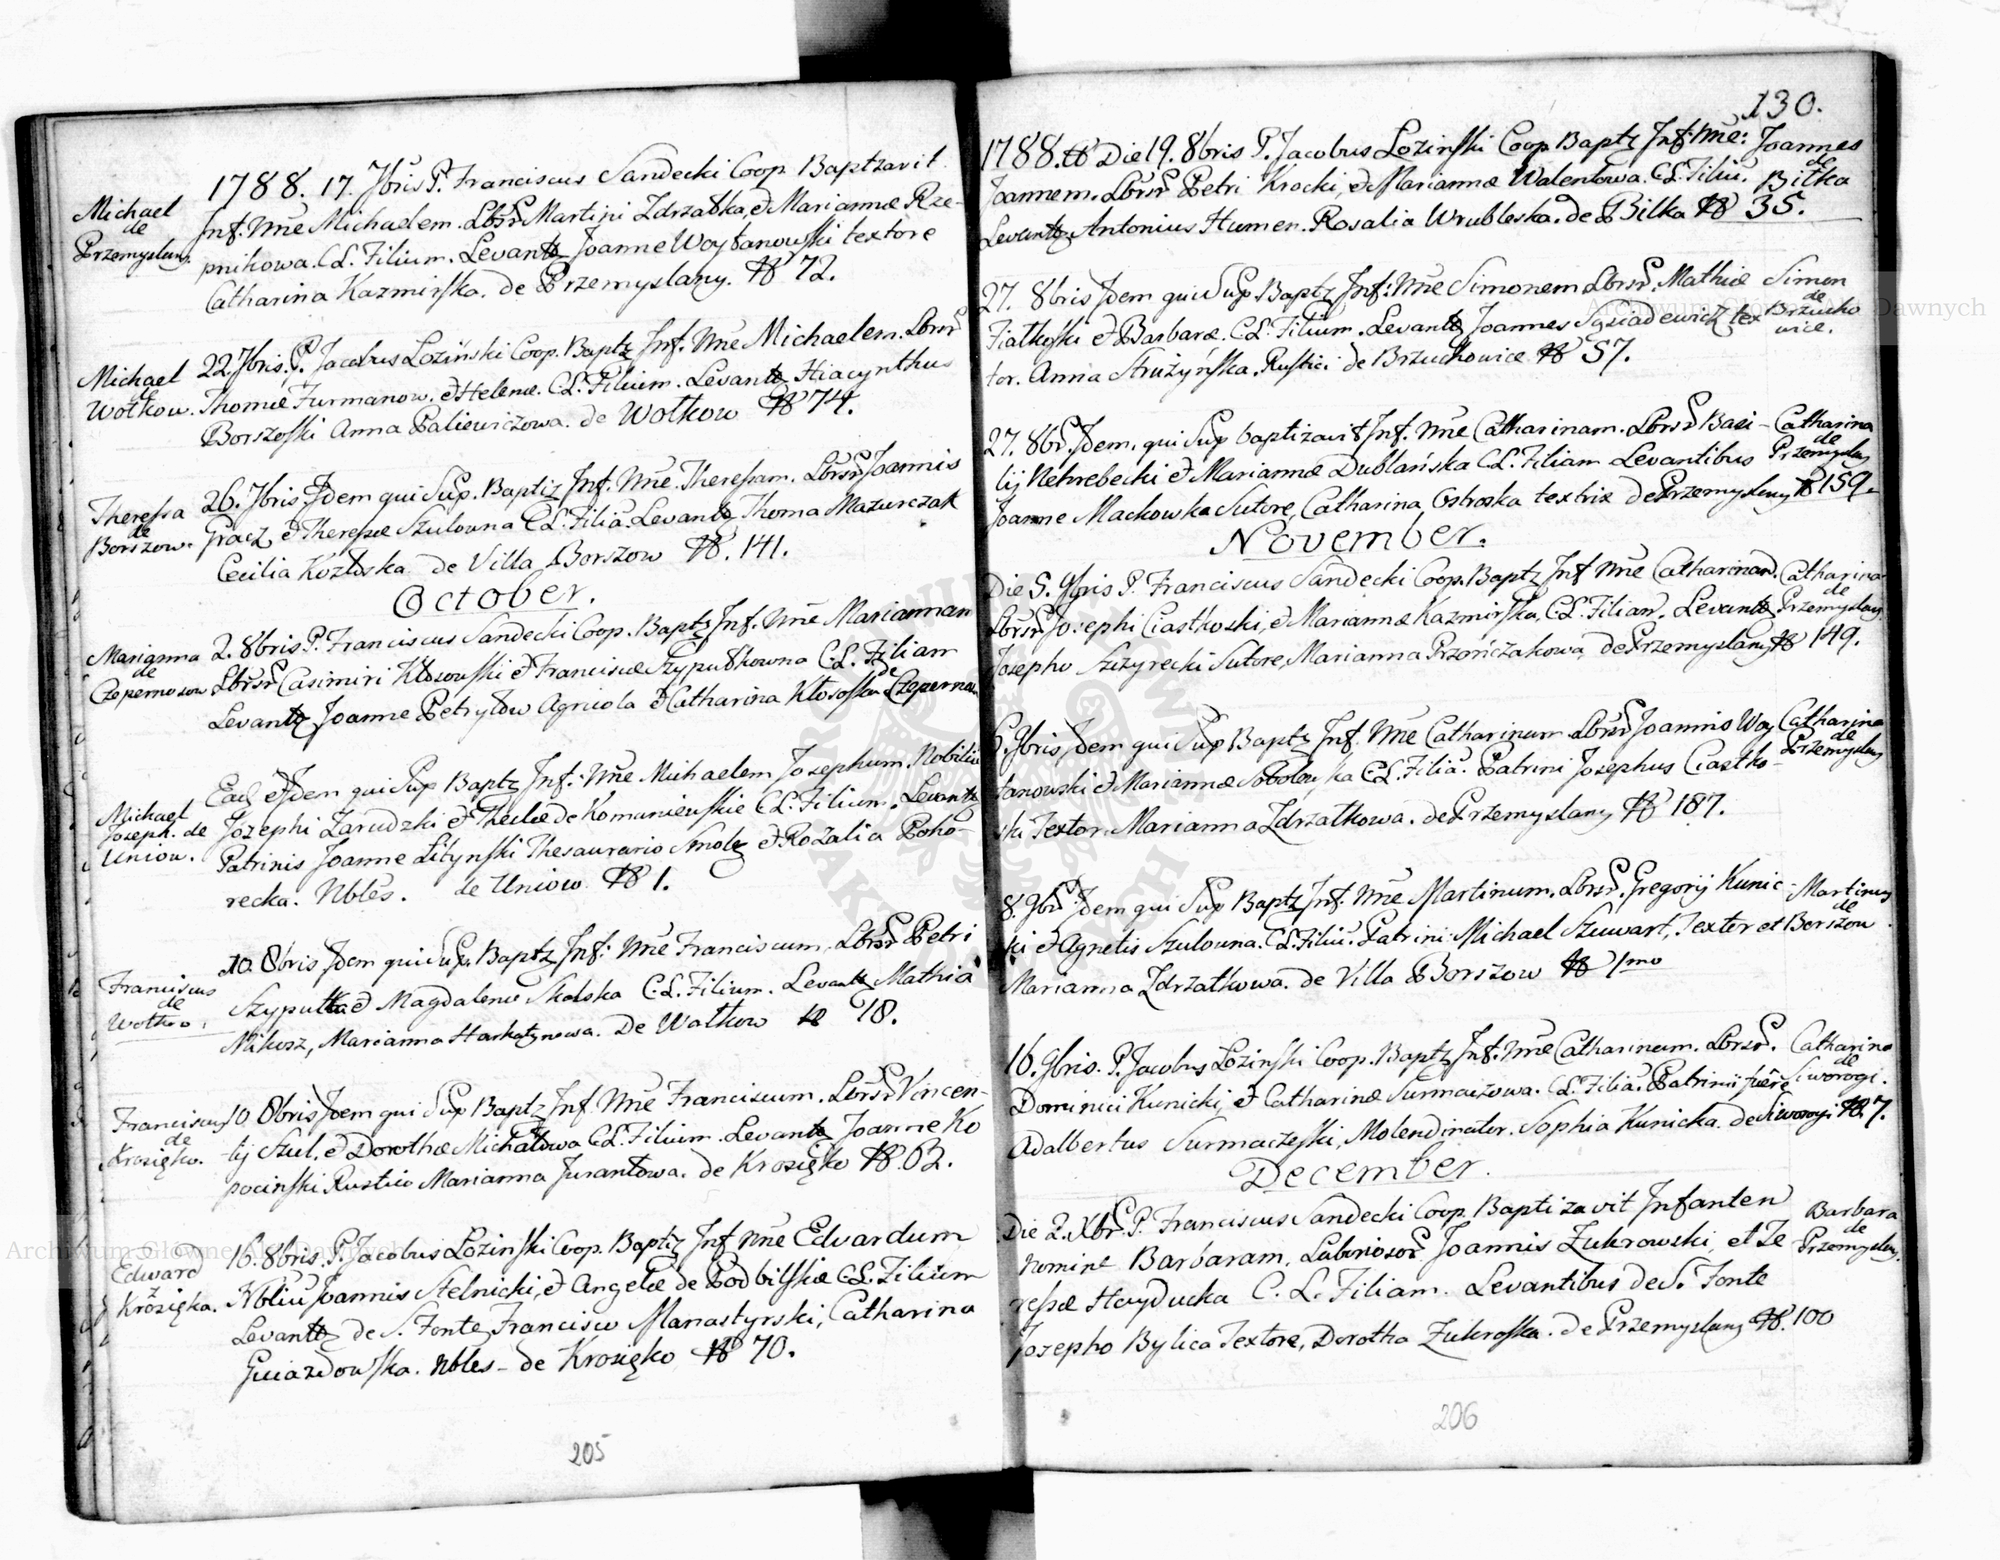 1788. 17. 7bris P. Franciscus Sandecki Coop Baptzavit
Michael
de
Przemyslany
Inf. Nne Michaelem. Lbsr Martini Zdrzałka, & Mariannæ Rze-
pnikowa. C.L. Filium. Levantb Joanne Woytanowski textore
Catharina Kazmirska. de Przemyslany. N 72.
Michael
de
Wołkow.
22. 7bris. P. Jacobus Loziński Coop. Baptz Inf. Nne Michaelem. Lbrsr
Thomæ Furmanow. & Helenæ. C.L. Filium. Levantb Hiacynthus
Borszoski Anna Paliewiczowa. de Wołkow N 74.
Theressa
de
Borszow.
26. 7bris. Idem qui Sup. Baptiz Inf. Nne. Theressam. Lbrsr Joannis
Gracz, & Theressæ Szulowna C.L. Filia. Levantb Thoma Mazurczak
Cecilia Kozłoska de Villa Borszow N. 141.
October.
Marianna
de
Czepernosow
2. 8bris P. Franciscus Sandecki Coop. Baptz Inf. Nne Mariannam
Lbrsr Casimiri Kłosowski & Franciscæ Szyputkowna C.L. Filiam
Levantb Joanne Petrytow Agricola & Catharina Kłososka de Czeperno
Michael
Joseph. de
Uniow.
Ead & Idem qui Sup Baptz Inf. Nne Michaelem Josephum. Nobiliu
Jozephi Zarudzki & Theclæ de Komanienskie C.L. Filium. Levantb
Patrinis Joanne Litynski Thesaurario Smolz & Rozalia Poho-
recka. Nbles. de Uniow N 1.
Franciscus
de
Wołkow.
10. 8bris Idem qui Sup. Baptz Inf. Nne Franciscum. Lbrsr Petri
Szyputka & Magdalenæ Skolska C.L. Filium. Levantb Mathia
Mikosz, Marianna Harkatynowa. De Wałkow N 78.
Franciscus
de
Krosięko.
10. 8bris Idem qui Sup Baptz Inf. Nne Franciscum. Lbrsr Vincen-
tij Szul. & Dorothæ Michałowa C.L. Filium. Levantb Joanne Ko
pocinski Rustico Marianna Jurantowa. de Krosięko N. 62.
Edward
z
Krosięka.
16. 8bris. P. Jacobus Lozinski Coop. Baptiz Inf Nne Edvardum
Nbliu Joannis Stelnicki, & Angelæ de Podbilskie C.L. Filium
Levantb de S. Fonte, Francisco Manastyrski, Catharina
Gwiazdowska. Nbles - de Krosięko N 70.
205
130.
1788. N Die 19. 8bris P. Jacobus Lozinski Coop Baptz Inf. Nne: Joannes
de
Joannem. Lbrsr Petri Krocki, & Mariannæ Walentowa. C.L. Filiu. Bitka
Levantb Antonius Humen. Rosalia Wrubleska. de Bilka N 35.
27. 8bris Idem qui Sup. Baptz Inf. Nne Simonem Lbrsr. Mathiæ Simon
de
Fiatkoski & Barbaræ. C.L. Filium. Levantb Joannes Sąsiadewicz tex Brzucho
wice.
tor. Anna Strużyńska. Rustici de Brzuchowice N 57.
27. 8br. Idem. qui Sup baptizavit Inf. Nne Catharinam. Lbrsr Basi- Catharina
de
lij Nehrebecki & Mariannæ Dublańska C.L. Filiam Levantibus Przemyslany
Joanne Mackowka Sutore, Catharina Ostroska textrix de Przemyslany N 159.
November.
Die 5. 9bris P. Franciscus Sandecki Coop. Baptz Inf Nne Catharinam. Catharina
de
Lbrsr Josephi Ciastkoski, & Mariannæ Kazmirska, C.L. Filiam. Levantb Przemyslany
Josepho Szczyrecki Sutore, Marianna Przończakowa de Przemyslany N 149.
6. 9bris Idem qui Sup Baptz Inf. Nne Catharinam Lbrsr Joannis Woy Catharina
de
tanowski & Mariannæ Sobolewska C.L. Filia. Patrini Josephus Ciastko- Przemyslany
ski Textor. Marianna Zdrzałkowa. de Przemyslany N 187.
8. 9br Idem qui Sup Baptz Inf. Nne Martinum. Lbrsr. Gregorij Kunic- Martinus
de
ki & Agnetis Szulowna. C.L. Filiu. Patrini Michael Szuwart, Textor et Borszow
Marianna Zdrzatkowa. de Villa Borszow N 1mo
16. 9bris. P. Jacobus Lozinski Coop. Baptz Inf. Nne Catharinam. Lbrsr. Catharina
de
Dominici Kunicki, & Catharinæ Surmaczowa. C.L. Filia. Patrini fuere Siworogi.
Adalbertus Surmaczeski, Molendinator. Sophia Kunicka. de Siworogi N. 7.
December.
Die 2. Xbr. P. Franciscus Sandecki Coop. Baptizavit Infantem Barbara
de
nomine Barbaram. Laboriosor. Joannis Zukrowski, et Te Przemyslany
ressæ Hayducka C. L. Filiam. Levantibus de S. Fonte
Jozepho Bylica Textore, Dorotha Zukroska. de Przemyslany N. 100
206
Archiwum Główne Akt Dawnych